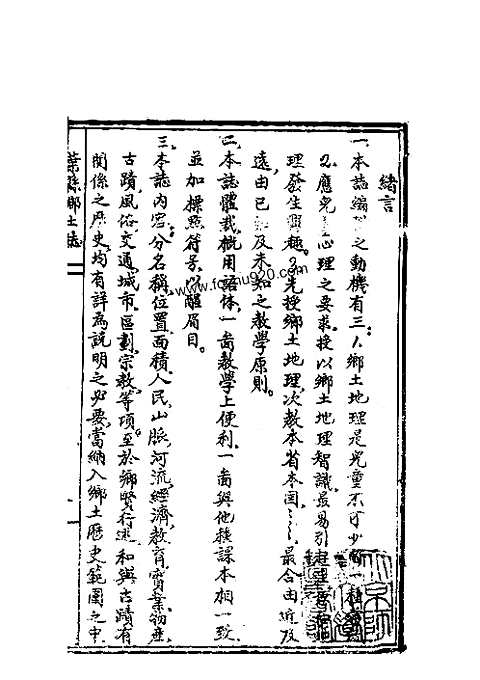 緒言
一、本誌編之動機有三：1.鄉土地理是兒童不可少的一種
2.應兒童心理之要求。授以鄉土地理智識最易引起
理發生興趣。3.先授鄉土地理，次教本省本國……最合由近及
遠，由已知及未知之教學原則。
二、本誌體裁概用語体，一啚教學上便利，一啚與他種課本相一致，
並加標點符号，以醒眉目。
三、本誌內容：分名稱，位置，面積，人民，山脈，河流，經濟，教育，實業，物產，
古蹟，風俗，交通，城市，區劃，宗教等項。至於鄉賢行述，和與古蹟有
関係之歷史，均有詳為說明之必要，當納入鄉土歷史範圍之中
葉縣鄉土誌
www.fozhu920.com